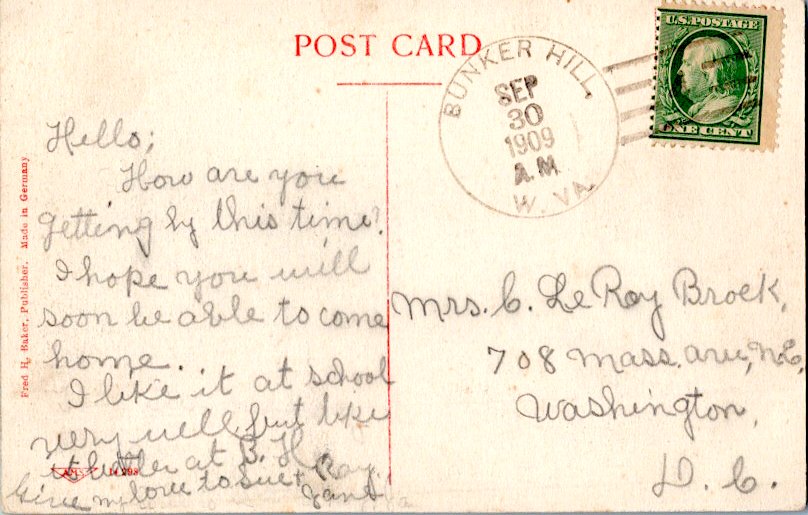 POST CARD
BUNKER HILL,
SEP
30
1909
A.M.
W. VA.
U.S. POSTAGE
ONE CENT
Fred H. Baker, Publisher. Made in Germany
Hello;
How are you
getting by this time?
I hope you will
soon be able to come
home.
I like it at school
very well but like
it better at B. H.
Give my love to
Ray.
Mrs. C. LeRoy Brock,
708 Mass. ave, N.E,
Washington,
D. C.